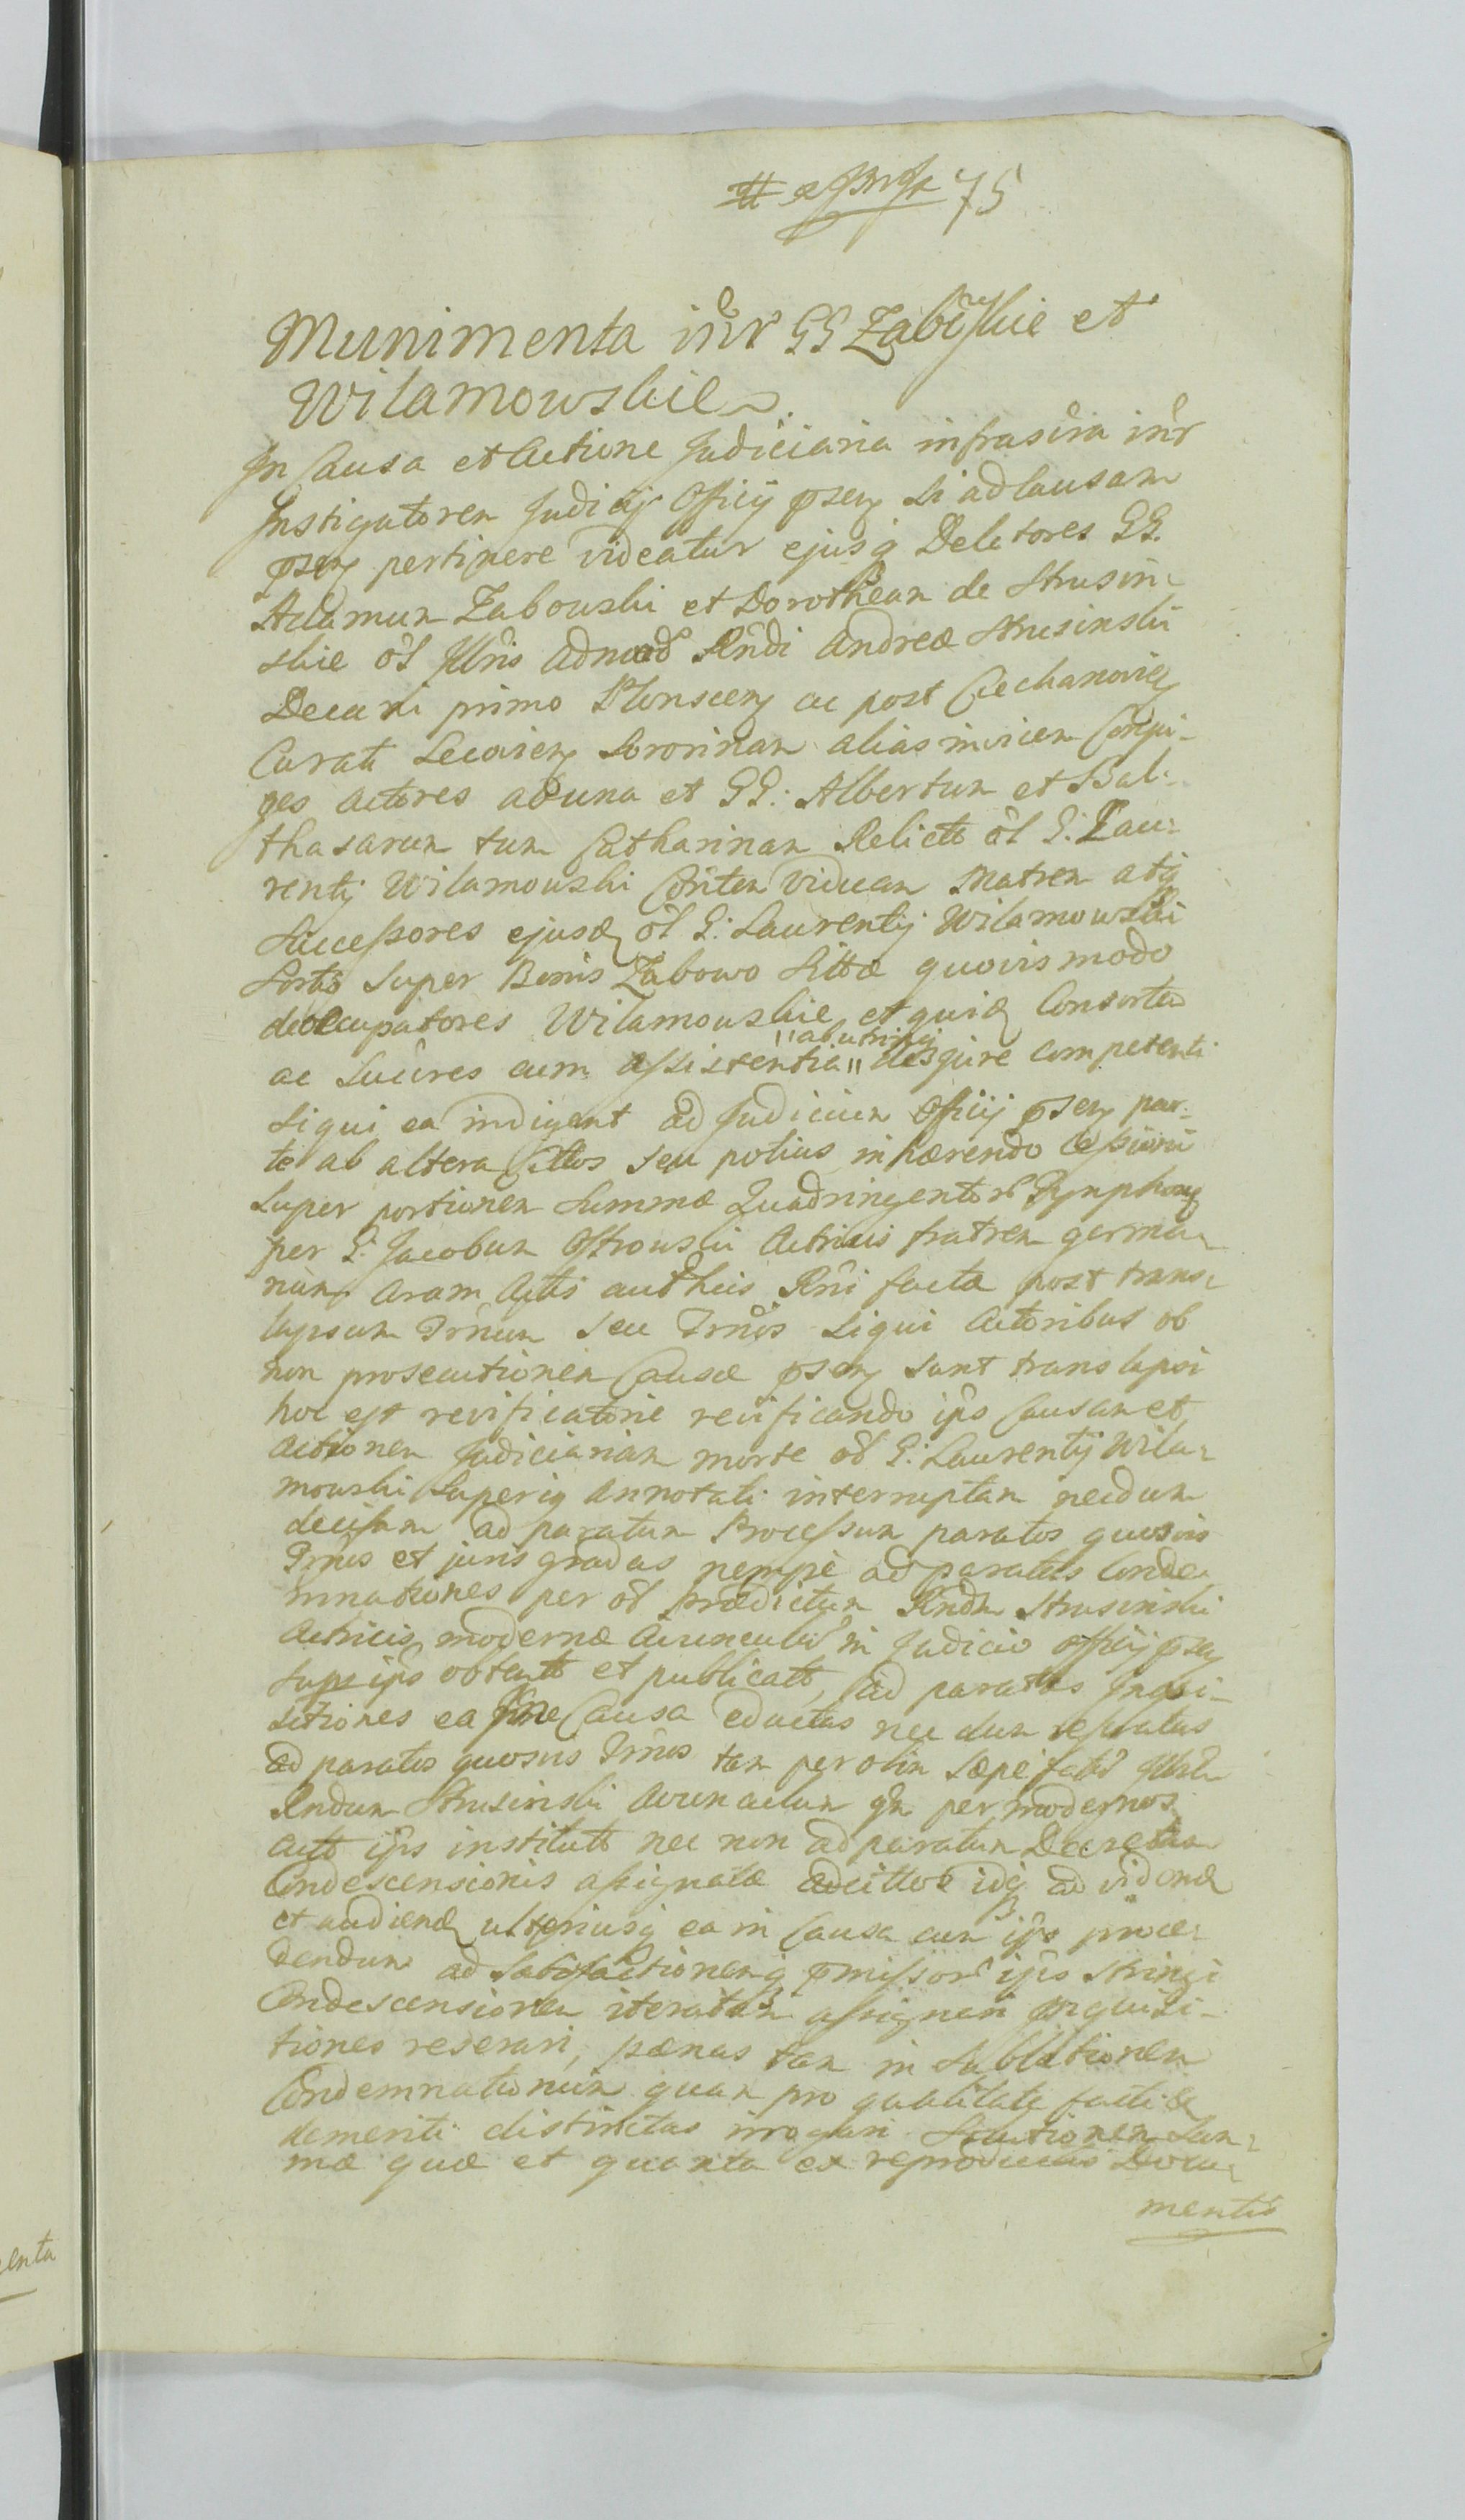 75
Munimenta inr GG Zabowskie et
Wilamowskie
In Causa et Actione Judiciaria infrascra inr
Instigatorem Judicij Officij psen si ad Causam
psen pertinere videatur ejusq Delatores GG.
Adamum Zabowski et Dorotheam de Strusin-
skie ol Illris admod Rndi Andreæ Strusinskii
Decani primo Plonscen ac post Ciechanovien
Curati Lecovien Sororinam alias invicem Conju-
ges Actores ad una et GG: Albertum et Bal-
thasarum tum Catharinam Relictā ol G: Lau-
rentij Wilamowski Coniten Viduam Matrem atq
Successores ejusd ol G: Laurentij Wilamowski
Sortis super Bonis Zabowo Sittæ quovis modo
deoccupatores Wilamowskie et quid Consortes
ac Succres cum assistentia "ab utrinq" de jure competenti
siqui ea indigent ad Judicium Officij psen par-
te ab altera Cittos seu potius inhærendo Cessioni
super portionem Summæ Quadringentor Tynphon
per G: Jacobum Ostrowski Actricis fratrem germa-
num coram Actis authcis Rni facta post trans-
lapsum Trnum seu Trnos siqui Actoribus ob
non prosecutionem Causæ psen sunt translapsi
hoc est revificatorie revificando ipso Causam et
Actionem Judiciariam morte ol G: Laurentij Wila-
mowski Superiq annotati interruptam necdum
decisam ad paratum Processum paratos quosvis
Trnos et juris gradus nempe ad paratas Conde-
mnationes per ol prædictum Rndm Strusinski
Actricis modernæ Avunculū in Judicio Officij psen
sup ipso obtentas et publicatas, ad paratas Inqui-
sitiones ea in Causa eductas nec dum reseratas
ad paratos quosvis Trnos tam per olim sæpefatū Illrem
Rndum Strusinski Avunculum qm per modernos
Actt ipso institutt nec non ad paratum Decretum
Condescensionis assignatæ adcittos idq ad vidend
et audiend ulteriusq ea in Causa cum ipso proce-
dendum ad satisfactionemq pmissor ipso stringi
Condescensionem iteratam assignari Inquisi-
tiones reserari, pœnas tam in sublationem
Condemnationum quam pro qualitate facti &
demeriti distinctas irrogari Solutionem Sum-
mæ quæ et quanta ex reproducendis Docu-
mentis
enta